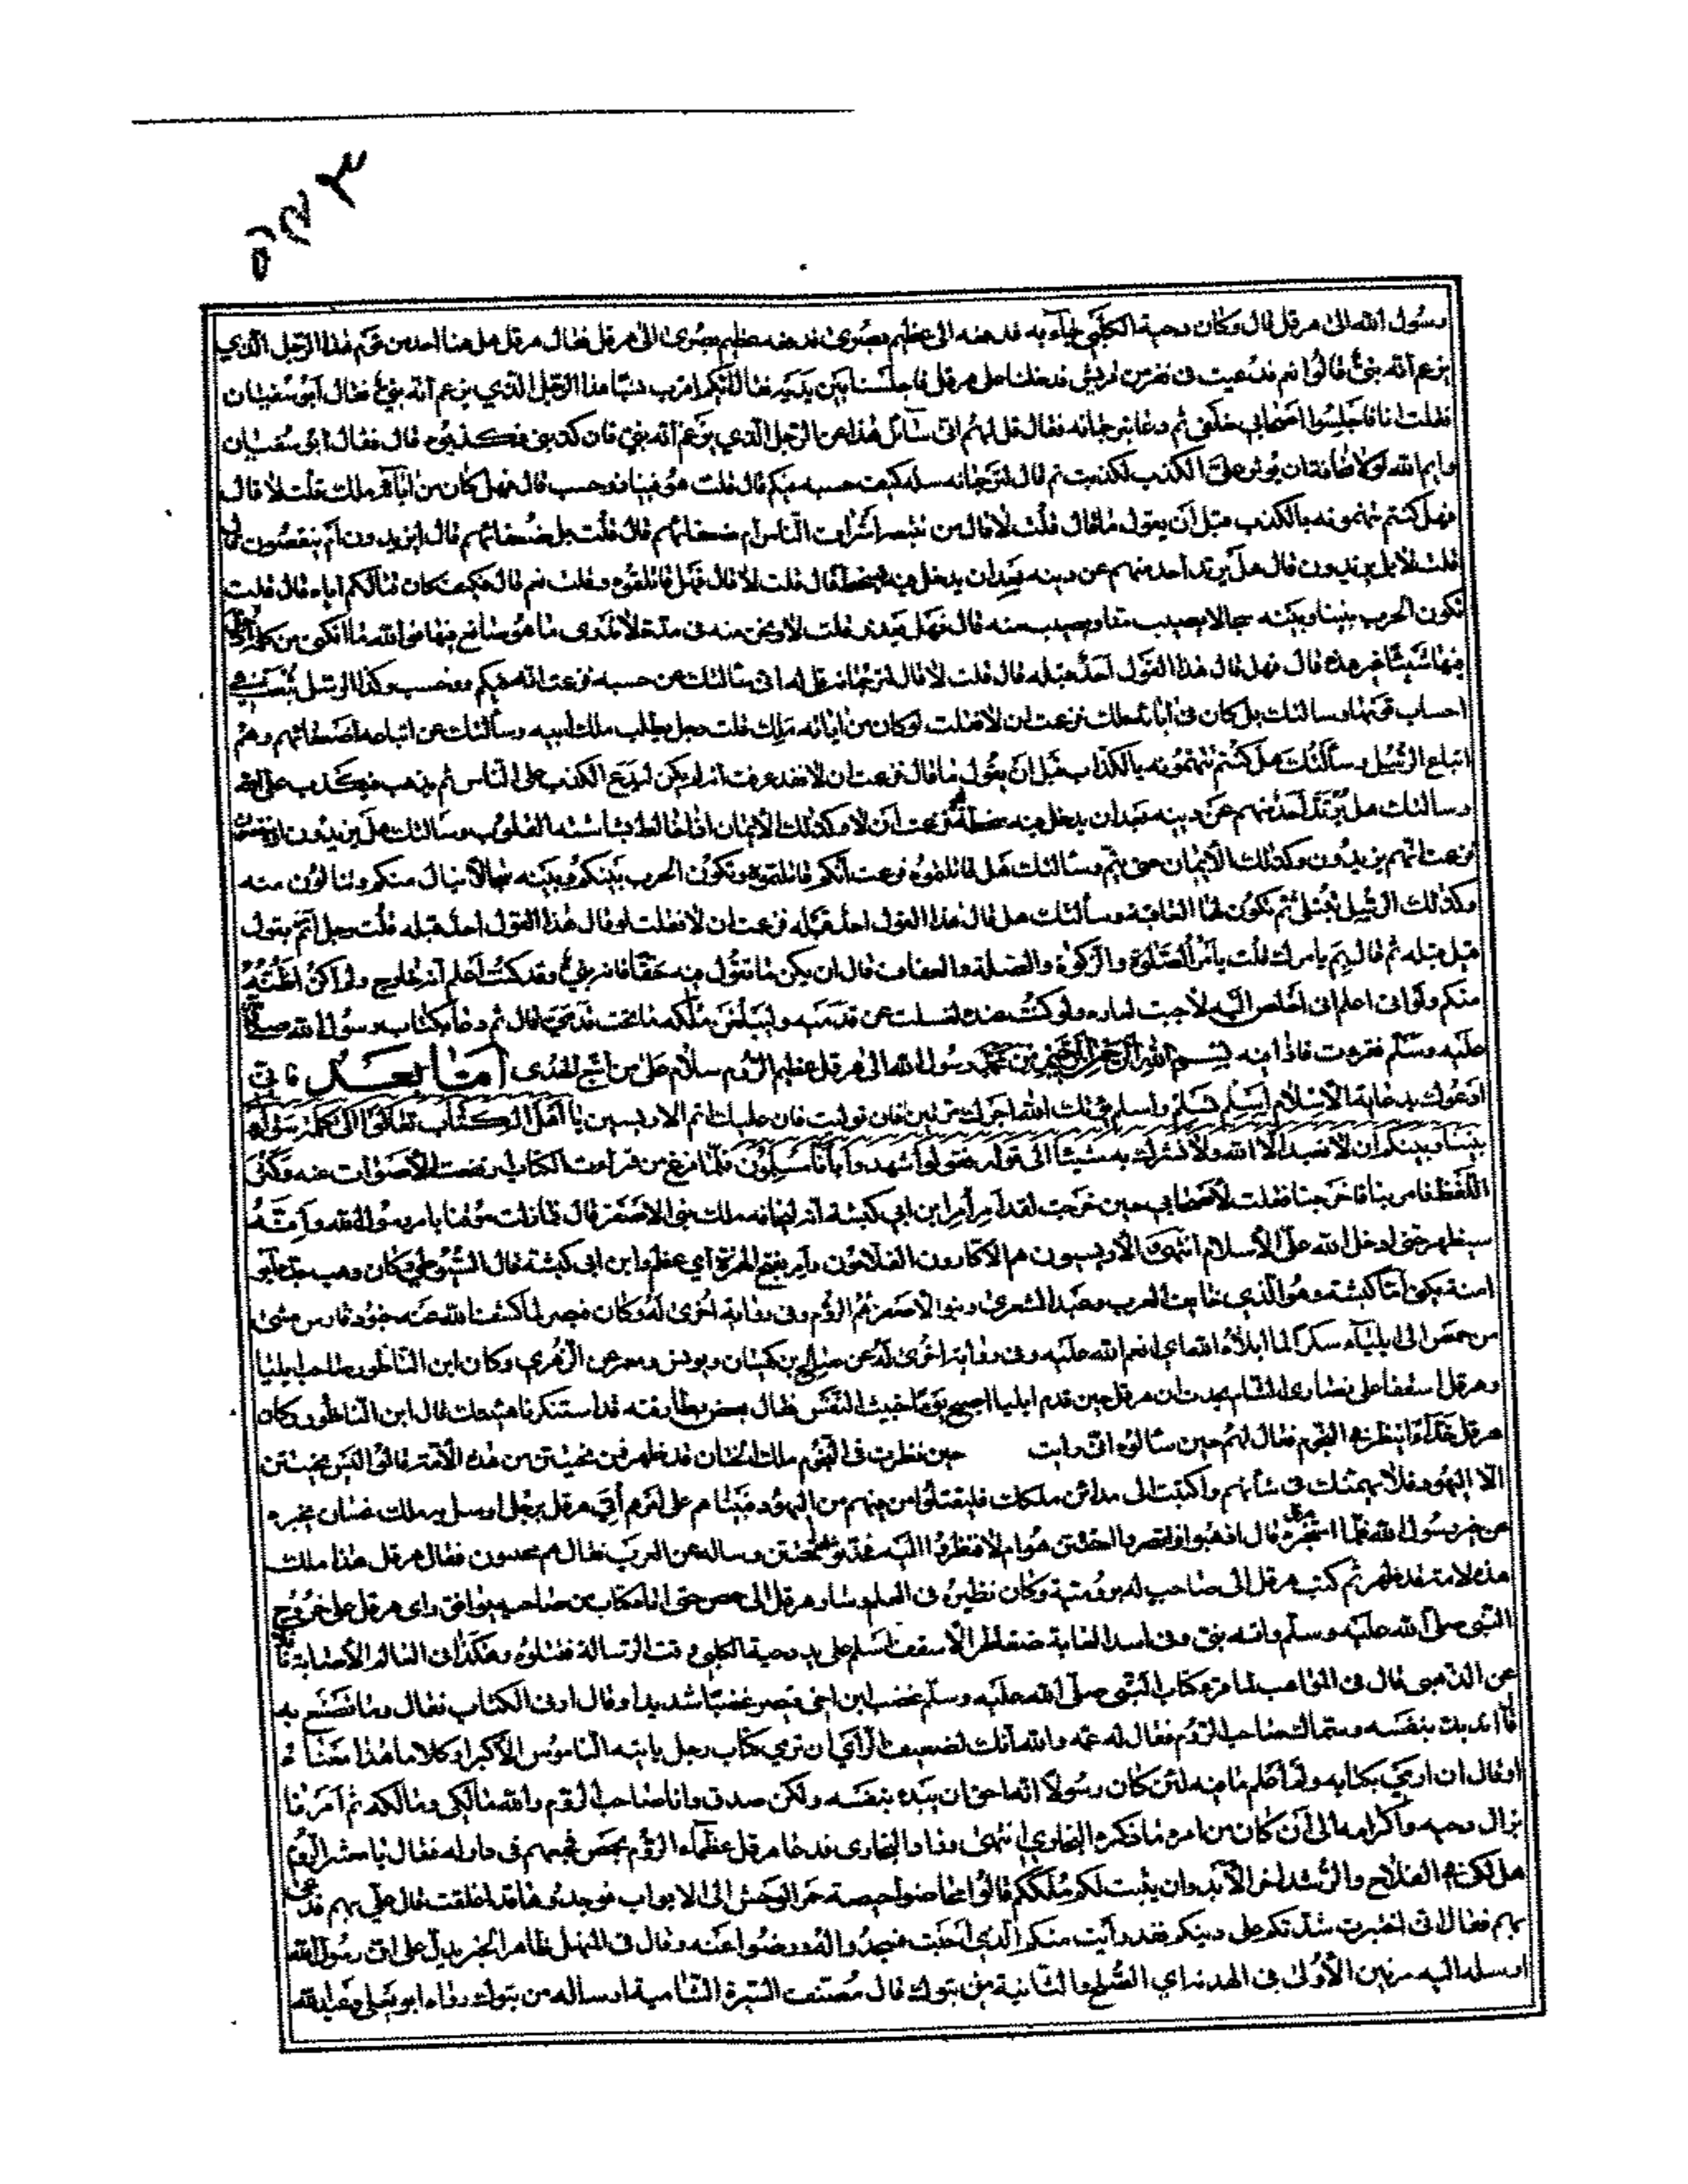 رسول الله الى هرقل قال وكان دحية الكلبي جاء به فدفعه الى عظيم بصرى فدفعه عظيم بصرى الى هرقل فقال هرقل هل هنا احد من قوم هذا الرجل الذي
يزعم أنه نبي قالوا نعم فدعيت في نفر من قريش فدخلنا على هرقل فاجلسنا بين يديه فقال ايكم اقرب نسبا هذا الرجل الذي يزعم أنه نبي فقال أبو سفيان
فقلت انا فاجلسوا اصحابي خلفي ثم دعا بترجمانه فقال قل لهم اني سائل هذا عن الرجل الذي يزعم أنه نبي فان كذبني فكذبوه قال فقال ابو سفيان
وايم الله لولا مخافة ان يوثر علي الكذب لكذبت ثم قال لترجمانه سله كيف حسبه فيكم قال قلت هو فينا ذو حسب قال فهل كان من آبائه ملك قلت لا قال
فهل كنتم تتهمونه بالكذب قبل أن يقول ما قال قلت لا قال من تبعه اشراف الناس ام ضعفائهم قال قلت بل ضعفائهم قال ايزيدون أم ينقصون
قلت لا بل يزيدون قال هل يرتد احد منهم عن دينه بعد ان يدخل فيه قال قلت لا قال فهل قاتلتموه قلت نعم قال فكيف كان قتالكم اياه قال قلت
تكون الحرب بيننا وبينه سجالا يصيب منا ونصيب منه قال فهل يغدر قلت لا ونحن منه في مدة لا ندري ما هو صانع فيها فوالله ما امكنني من كلمة ادخل
فيها شيئا غير هذه قال فهل قال هذا القول احد قبله قال قلت لا قال لترجمانه قل له اني سالتك عن حسبه فزعمت انه فيكم ذو حسب وكذا الرسل تبعث في
احساب قومها وسالتك هل كان في آبائه ملك فزعمت ان لا فقلت لو كان من آبائه ملك قلت رجل يطلب ملك أبيه وسألتك عن اتباعه اضعفائهم وهم
اتباع الرسل وسألتك هل كنتم تتهمونه بالكذب قبل ان يقول ما قال فزعمت ان لا فقد عرفت انه لم يكن ليدع الكذب على الناس ثم يذهب فيكذب على الله
وسالتك هل يرتد أحد منهم عن دينه بعد ان يدخل فيه سخطة فزعمت أن لا وكذلك الايمان اذا خالط بشاشته القلوب وسالتك هل يزيدون
فزعمت انهم يزيدون وكذلك الايمان حتى يتم وسالتك هل قاتلتموه فزعمت أنكم قاتلتموه وتكون الحرب بينكم وبينه سجالا ينال منكم وتنالون منه
وكذلك الرسل تبتلى ثم تكون لها العاقبة وسألتك هل قال هذا القول احد قبله فزعمت ان لا فقلت لو قال هذا القول احد قبله قلت رجل ائتم بقول
قيل قبله ثم قال بم يامرك قلت يأمر بالصلوة والزكوة والصلة والعفاف قال ان يكن ما تقول فيه حقا فانه نبي وقد كنت أعلم أنه خارج ولم اكن اظنه
منكم ولو اني اعلم اني اخلص اليه لاحببت لقاءه ولو كنت عنده لغسلت عن قدميه وليبلغن ملكه ما تحت قدمي قال ثم دعا بكتاب رسول الله صلى الله
عليه وسلم فقرءت فاذا فيه بسم الله الرحمن الرحيم من محمد رسول الله الى هرقل عظيم الروم سلام على من اتبع الهدى أما بعد فاني
ادعوك بدعاية الاسلام اسلم تسلم واسلم يؤتك الله اجرك مرتين فان توليت فان عليك اثم الاريسيين يا أهل الكتاب تعالوا الى كلمة سواء
بيننا وبينكم ان لا نعبد الا الله ولا نشرك به شيئا الى قوله فقولوا اشهدوا بأنا مسلمون فلما فرغ من قراءت الكتاب ارتفعت الأصوات عنده وكثر
اللغط فامر بنا فاخرجنا فقلت لاصحابي حين خرجت لقد أمر أمر ابن ابي كبشة انه ليخافه ملك بني الاصفر قال فما زلت موقنا بامر رسول الله وأنه
سيظهر حتى ادخل الله علي الأسلام انتهى الاريسيون هم الاكارون الفلاحون وأمر بفتح الهمزة أي عظم وابن ابي كبشة قال السيوطي وكان وهب جد أبو
امنة يكنى أبا كبشة وهو الذي خالف العرب وعبد الشعرى وبنو الاصفر هم الروم وفي رواية أخرى له وكان قيصر لما كشف الله عنه جنود فارس مشى
من حمص الى ايلياء شكرا لما ابلاه الله اي انعم الله عليه وفي رواية اخرى له عن صالح بن كيسان ويونس ومعمر عن الزهري وكان ابن الناطور صاحب ايليا
وهرقل اسقفا على نصارى الشام يحدث ان هرقل حين قدم ايليا اصبح يوما خبيث النفس فقال بعض بطارقته قد استنكرنا هيئتك قال ابن الناطور وكان
هرقل حزاء ينظر في النجوم فقال لهم حين سألوه اني رايت حين نظرت في النجوم ملك الختان قد ظهر فمن يختتن من هذه الأمة قالوا ليس يختتن
الا اليهود فلا يهمنك في شأنهم واكتب الى مدائن ملكك فليقتلوا من فيهم من اليهود فبينا هم على امرهم أتي هرقل برجل ارسل به ملك غسان يخبره
عن خبر رسول الله فلما استخبره هرقل قال اذهبوا فانظروا امختتن هو ام لا فنظروا اليه فحدثوه انه مختتن وساله عن العرب فقال هم يختتنون فقال هرقل هذا ملك
هذه الامة قد ظهر ثم كتب هرقل الى صاحب له برومية وكان نظيره في العلم وسار هرقل الى حمص حتى اتاه كتاب من صاحبه يوافق راى هرقل على خروج
النبي صلى الله عليه وسلم وانه نبي وفي اسد الغابة ضغاطر الاسقف اسلم على يد دحية الكلبي وقت الرسالة فقتلوه وهكذا في
عن الذهبي قال في المواهب لما قرء كتاب النبي صلى الله عليه وسلم غضب ابن اخي قيصر غضبا شديدا وقال ارني الكتاب فقال وما تصنع به
فقال انه بدء بنفسه وسماك صاحب الروم فقال له عمه والله انك لضعيف الرأي ان ترمي كتاب رجل ياتيه الناموس الأكبر او كلاما هذا معناه
او قال ان ارمي بكتابه ولم أعلم ما فيه لئن كان رسول الله انه احق ان يبدء بنفسه ولكن صدق وانا صاحب الروم والله مالكي ومالكه ثم أمر
بانزال دحيه واكرامه الى أن كان من امره ما ذكره البخاري انتهى وزاد البخارى فدعا هرقل عظماء الروم بحمص فجمعهم في دار له فقال يا معشر الروم
هل لكم في الفلاح والرشد اخر الأبد وان يثبت لكم ملككم قالوا فحاصوا حيصة حمر الوحش الى الابواب فوجدوها قد اغلقت فقال علي بهم فدعى
بهم فقال اني اختبرت شدتكم على دينكم فقد رأيت منكم الذي احببت فسجدوا له ورضوا عنه وقال في السهل ظاهر الخبر يدل على ان رسول الله
ارسله اليه مرتين الأولى في الهدنة اي الصلح والثانية من تبوك قال مصنف السيرة الشامية ارساله من تبوك رواه ابو يعلى وعبد الله